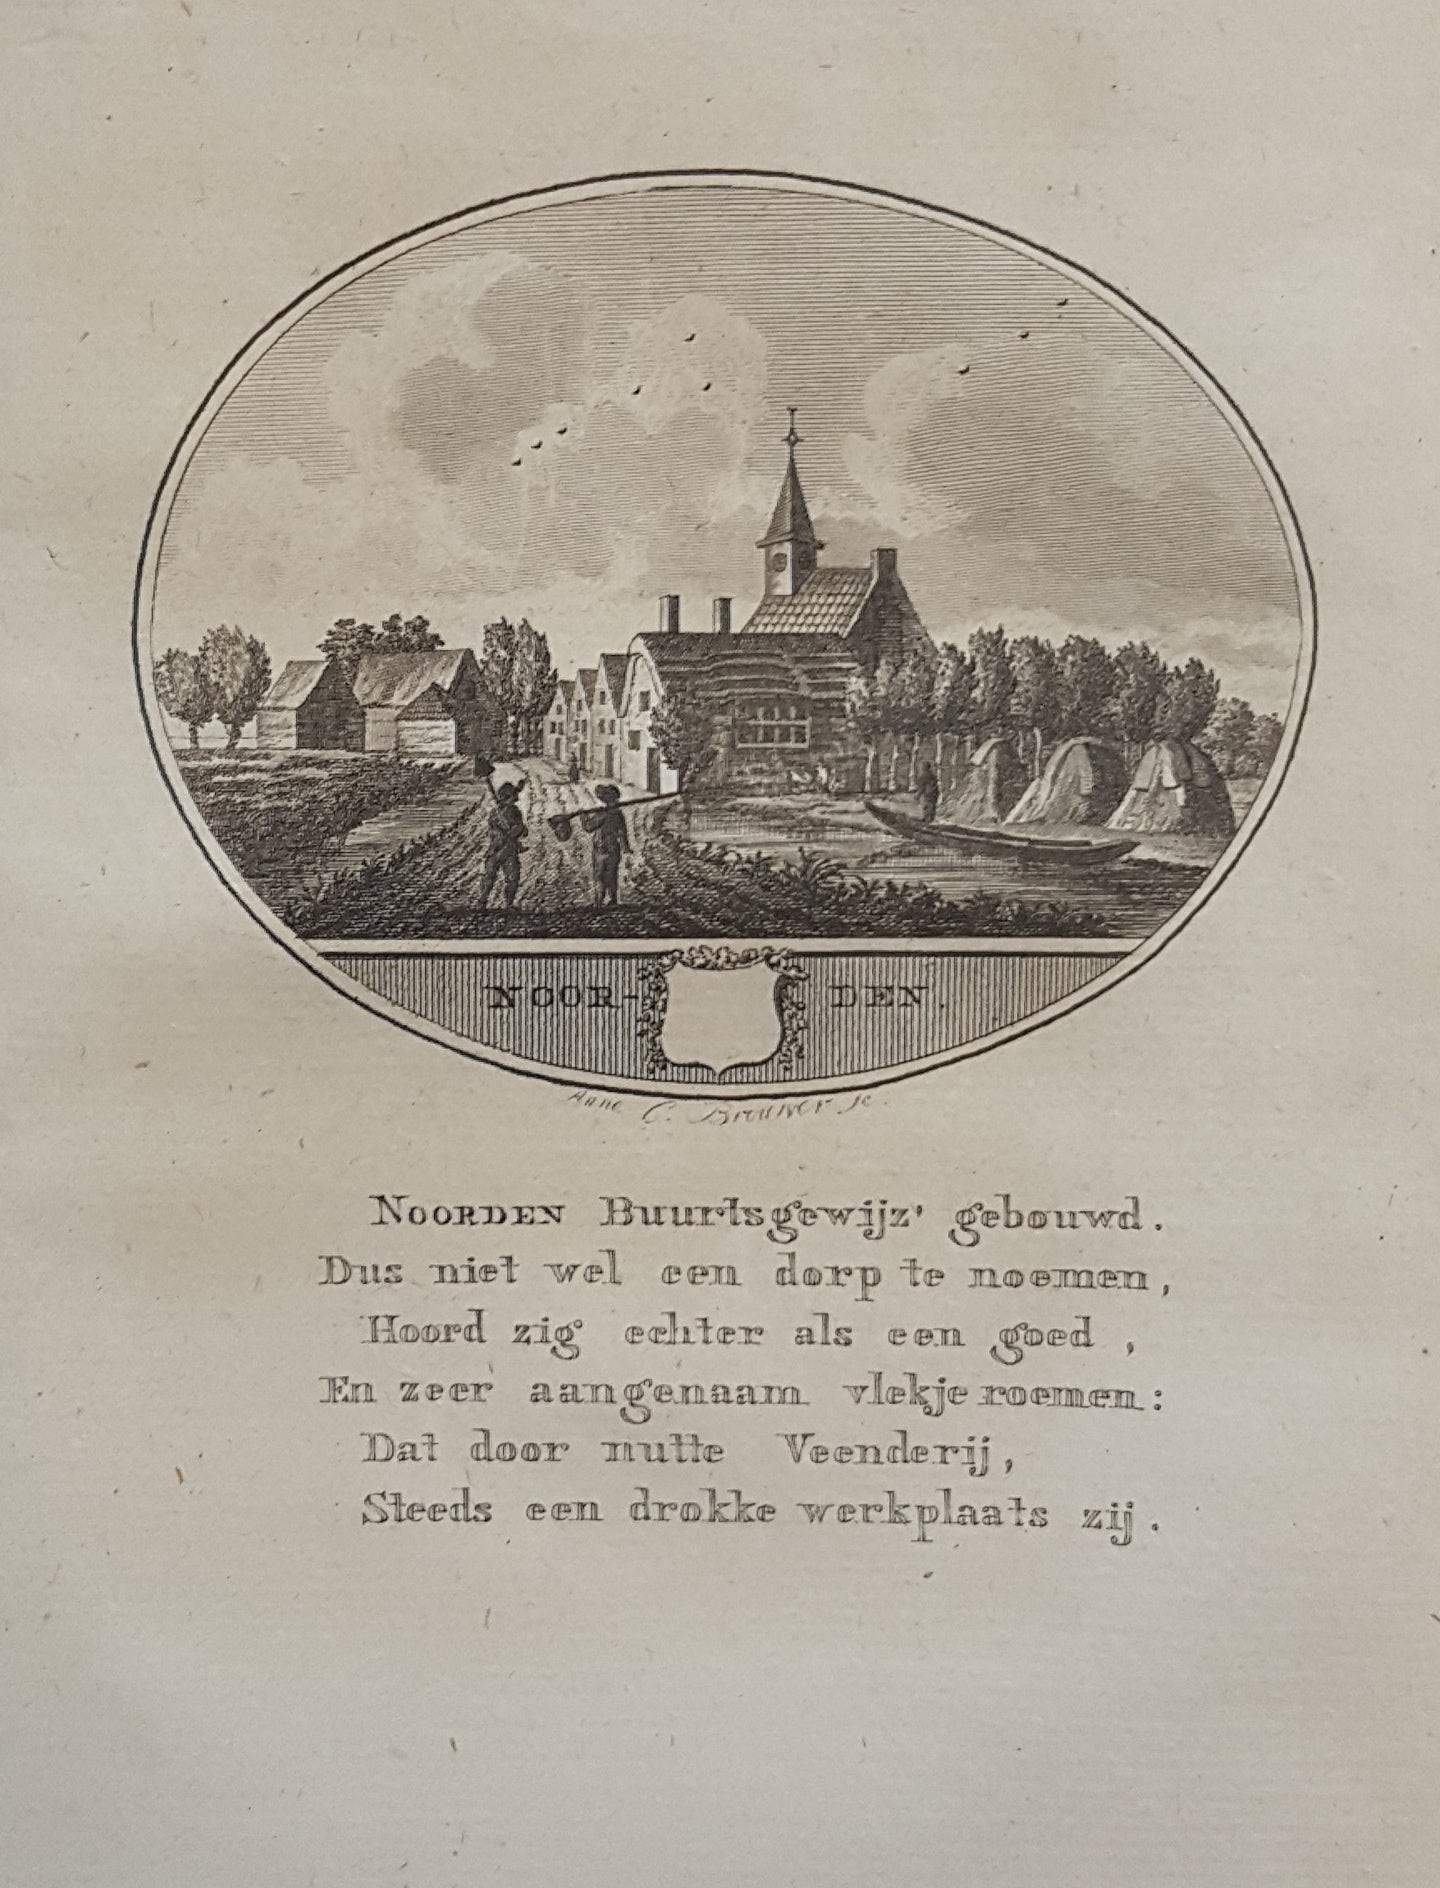 NOOR- DEN.
Anne C. Brouwer sc.
NOORDEN Buurtsgewijz' gebouwd.
Dus niet wel een dorp te noemen,
Hoord zig echter als een goed,
En zeer aangenaam vlekje roemen:
Dat door nutte Veenderij,
Steeds een drokke werkplaats zij.